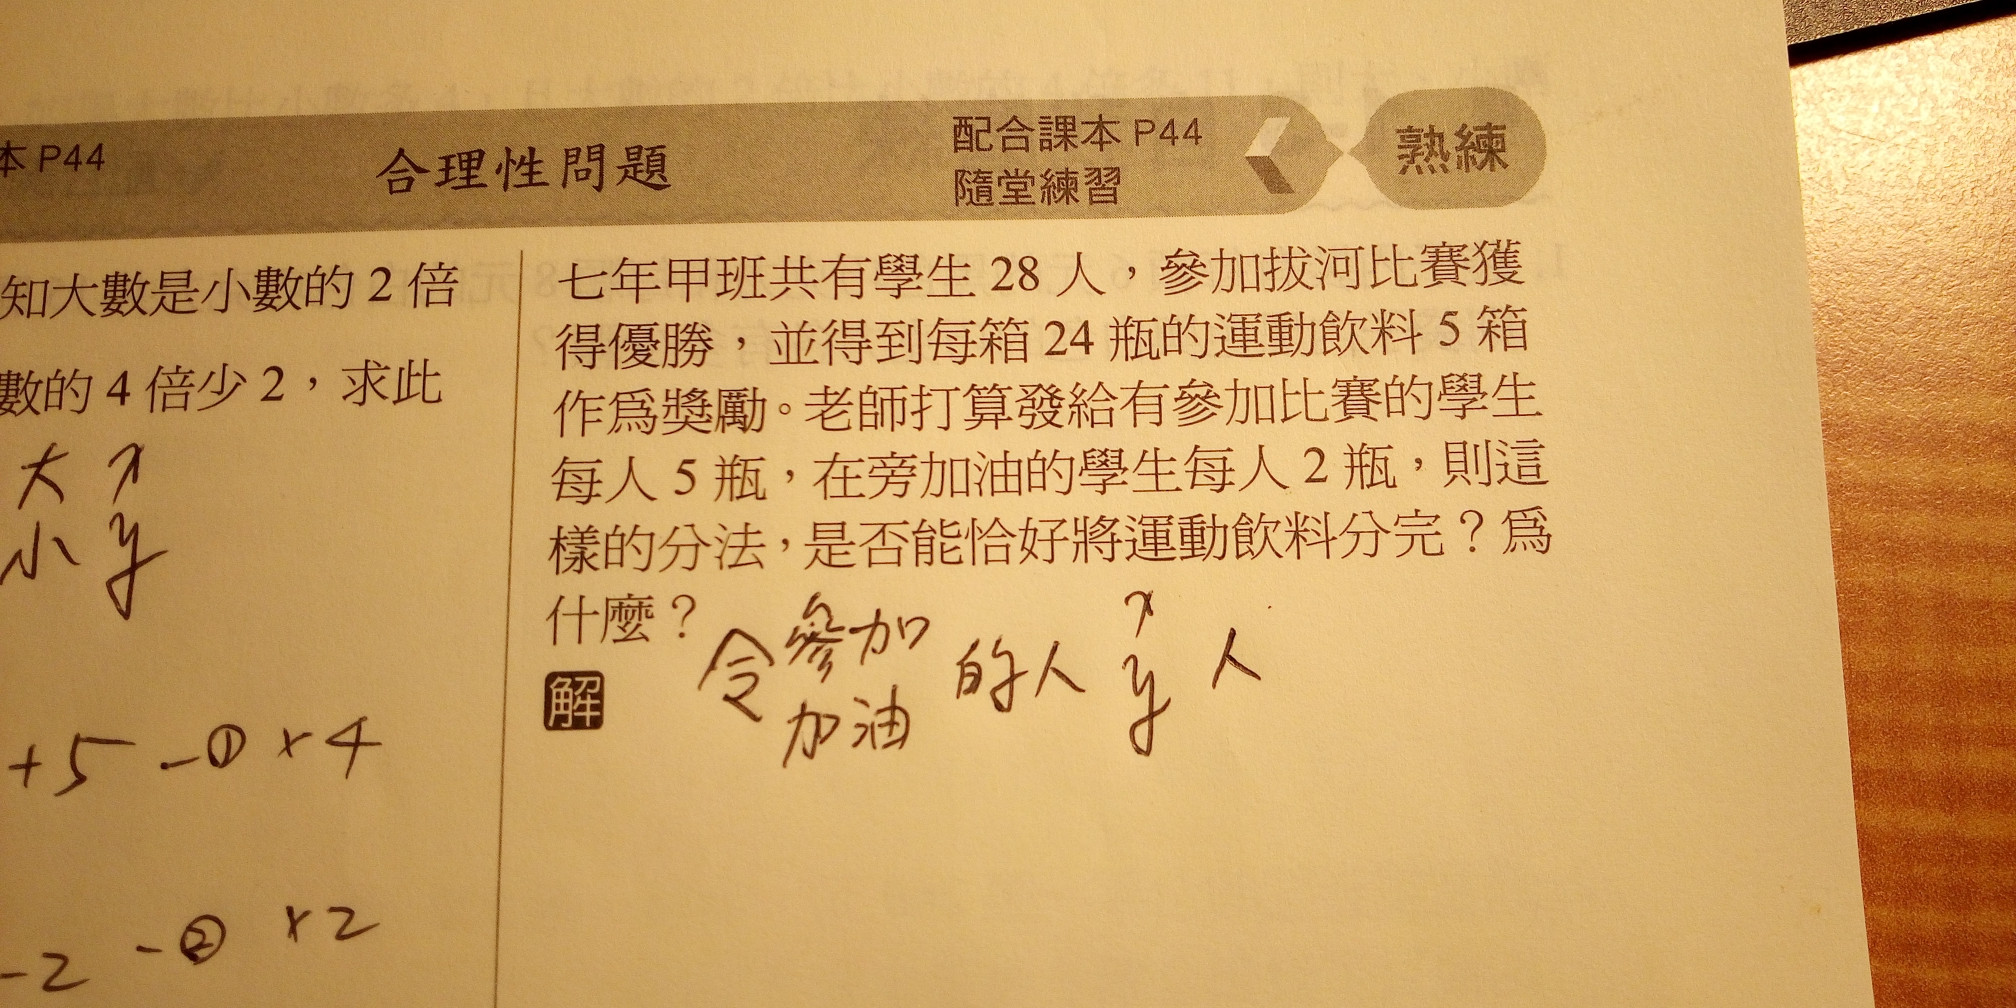 本 P44
合理性問題
配合課本 P44
隨堂練習
熟練
知大數是小數的 2 倍
數的 4 倍少 2，求此
大 x
小 y
+5 -① ×4
-2 -② ×2
七年甲班共有學生 28 人，參加拔河比賽獲
得優勝，並得到每箱 24 瓶的運動飲料 5 箱
作為獎勵。老師打算發給有參加比賽的學生
每人 5 瓶，在旁加油的學生每人 2 瓶，則這
樣的分法，是否能恰好將運動飲料分完？為
什麼？
解
令 參加 的人 x 人
加油 y